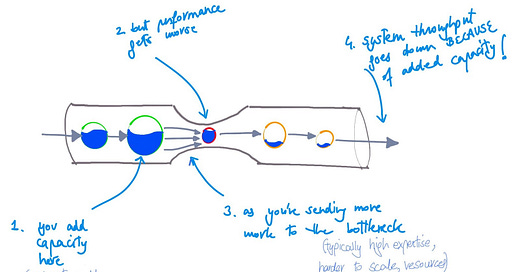 2. but performance
gets worse
4. system throughput
goes down BECAUSE
of added capacity!
1. you add
capacity
here
3. as you're sending more
work to the bottleneck
(typically high expertise,
harder to scale, resource)